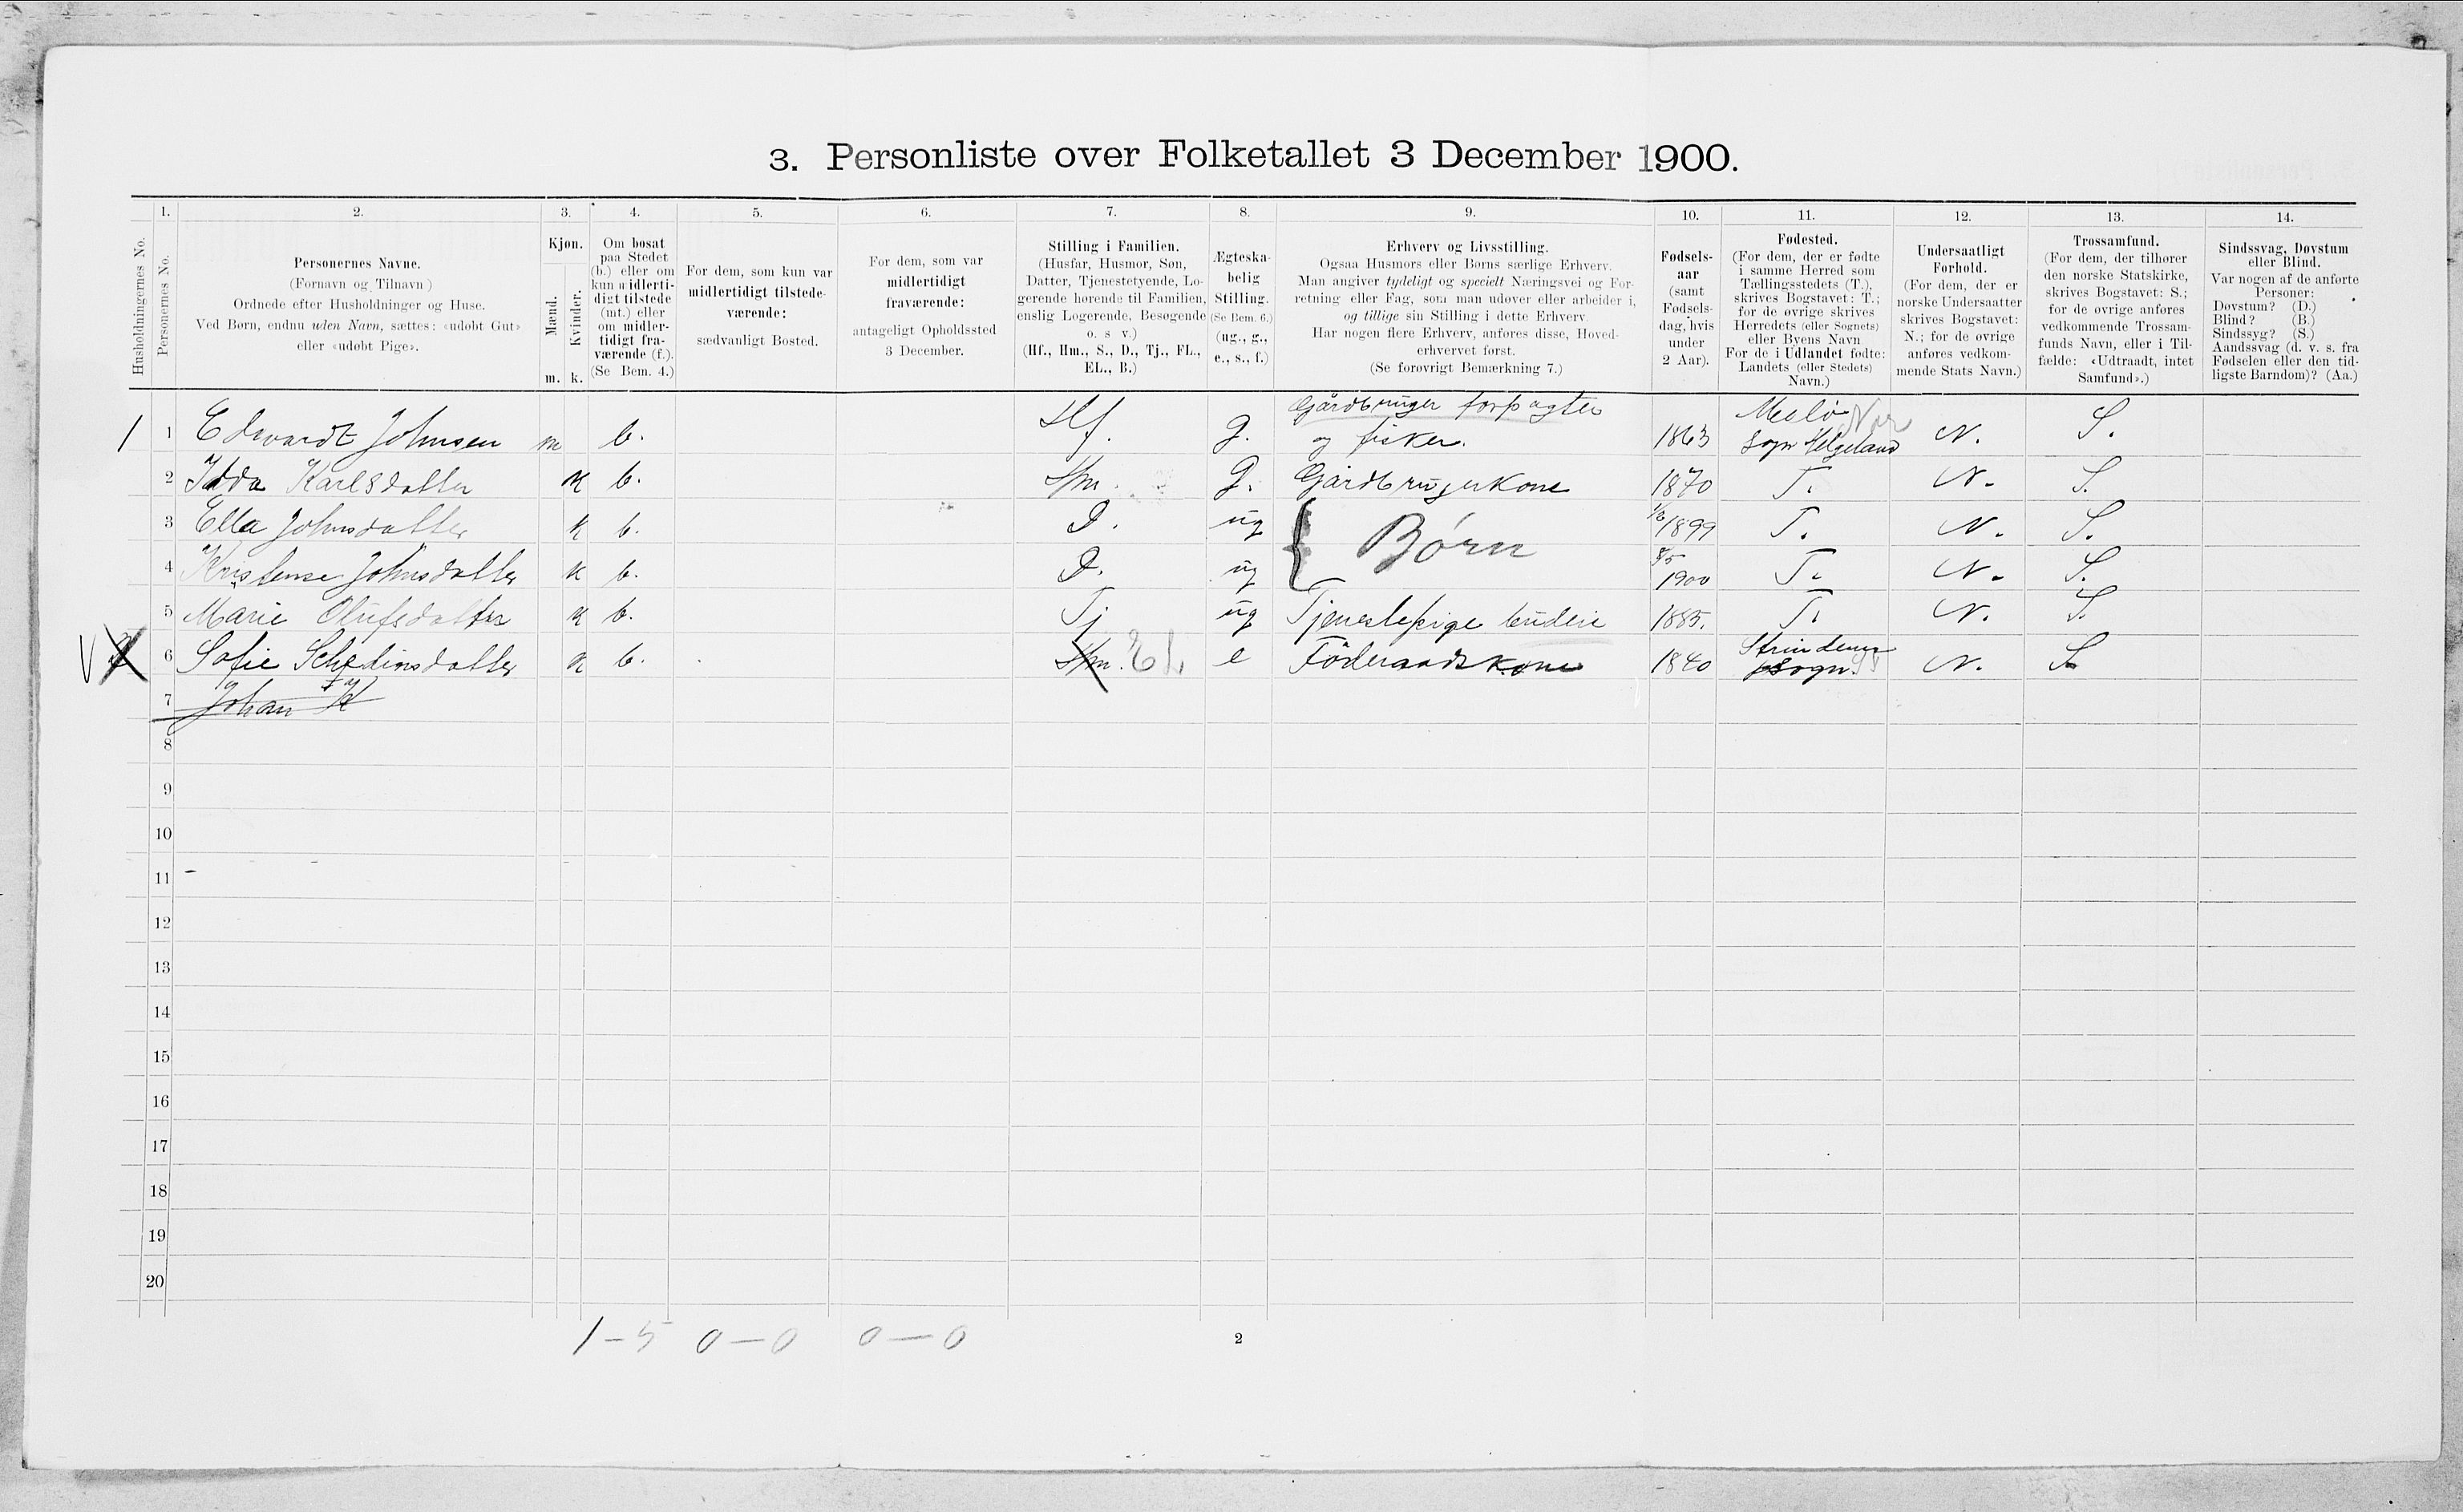 3. Personliste over Folketallet 3 December 1900.
1. 2. 3. 4. 5. 6. 7. 8. 9. 10. 11. 12. 13. 14.
Husholdningernes No.
Personernes No.
Personernes Navne.
(Fornavn og Tilnavn)
Ordnede efter Husholdninger og Huse.
Ved Børn, endnu uden Navn, sættes: «udøbt Gut»
eller «udøbt Pige».
Kjøn.
Mænd.
Kvinder.
m. k.
Om bosat
paa Stedet
(b.) eller om
kun midlerti-
digt tilstede
(mt.) eller
om midler-
tidigt fra-
værende (f.).
(Se Bem. 4.)
For dem, som kun var
midlertidigt tilstede-
værende:
sædvanligt Bosted.
For dem, som var
midlertidigt
fraværende:
antageligt Opholdssted
3 December.
Stilling i Familien.
(Husfar, Husmor, Søn,
Datter, Tjenestetyende, Lo-
gerende hørende til Familien,
enslig Logerende, Besøgende
o. s v.)
(Hf., Hm., S., D., Tj., FL.,
EL., B.)
Ægteska-
belig
Stilling.
(Se Bem. 6.)
(ug., g.,
e., s., f.)
Erhverv og Livsstilling.
Ogsaa Husmors eller Børns særlige Erhverv.
Man angiver tydeligt og specielt Næringsvei og For-
retning eller Fag, som man udøver eller arbeider i,
og tillige sin Stilling i dette Erhverv.
Har nogen flere Erhverv, anføres disse, Hoved-
erhvervet først.
(Se forøvrigt Bemærkning 7.)
Fødsels-
aar
(samt
Fødsels-
dag, hvis
under
2 Aar).
Fødested.
(For dem, der er fødte
i samme Herred som
Tællingsstedets (T.),
skrives Bogstavet: T.;
for de øvrige skrives
Herredets (eller Sognets)
eller Byens Navn.
For de i Udlandet fødte:
Landets (eller Stedets)
Navn.)
Undersaatligt
Forhold.
(For dem, der er
norske Undersaatter
skrives Bogstavet:
N.; for de øvrige
anføres vedkom-
mende Stats Navn.)
Trossamfund.
(For dem, der tilhører
den norske Statskirke,
skrives Bogstavet: S.;
for de øvrige anføres
vedkommende Trossam-
funds Navn, eller i Til-
fælde: «Udtraadt, intet
Samfund».)
Sindssvag, Døvstum
eller Blind.
Var nogen af de anførte
Personer:
Døvstum? (D.)
Blind? (B.)
Sindssyg? (S.)
Aandssvag (d. v. s. fra
Fødselen eller den tid-
ligste Barndom)? (Aa.)
Gårdbruger forpagter Meelö Nor
1 1 Edvardt Johnsen m b. Hf. g. og fisker. 1863 Sogn Helgeland N. S.
2 Idda Karlsdatter k b. Hm. g. Gårdbrugerkone 1870 T. N. S.
3 Ella Johnsdatter k b. D. ug 1899 T. N. S.
Børn
4 Kristense Johnsdatter k b. D. ug 1900 T. N. S.
5 Marie Olufsdatter k b. Tj ug Tjenestepige budeie 1885. T. N. S.
V 6 Sofie k b. Hm. EL e Föderaadskone 1840 Strindens Sogn. ST N. S
7 Johan K
8
9
10
11
12
13
14
15
16
17
18
19
20
1-5 0-0 0-0 2